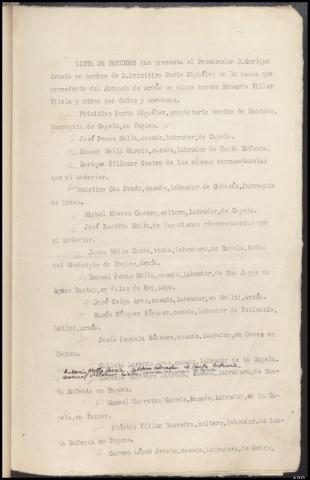 LISTA DE TESTIGOS que presenta el Procurador D.Enrique
Aranda en nombre de D.Primitivo Parto en la causa que
procedente del Juzgado de Arzúa se sigue contra Eduardo Villar
y otros por daños y amenazas.
Primitivo Parto propietario vecino de
Parroquia de Capela, en Toques.
José Penas Mella, casado, labrador, de Capela.
Manuel Mella García, casado, labrador, de Santa Eufemia.
Enrique Villamor Castro de las mismas circunstancias
que el anterior.
Faustino Prado, casado, labrador de Parroquia
de Ordes.
Miguel Nieves Castro, soltero, labrador, de Capela.
José de las mismas circunstancias que
el anterior.
Juana Mella viuda, labradora, de Capela, todos
del Municipio de Toques, Arzúa.
Manuel Penas Mella, casado, labrador, de San Jorge de
Aguas Santas, en Palas de Rey, Lugo.
José Veiga Ares, casado, labrador, en Mellid, Arzúa.
Ramón Vázquez Vázquez, casado, labrador de
Mellid, Arzúa.
Jesús Sánchez, casado, labrador, de Ordes en
Toques.
Ares, casado, labrador de la Capela.
Antonio Mella García soltero labrador de Santa Eufemia
casado, labradora, de San-
ta Eufemia en Toques.
Manuel Carreira García, casado, labrador, de la Ca-
pela, en Toques.
Plácido Villar Saavedra, soltero, labrador, de San-
ta Eufemia en Toques.
Carmen López Prieto, casada, labradora, de Ordes,